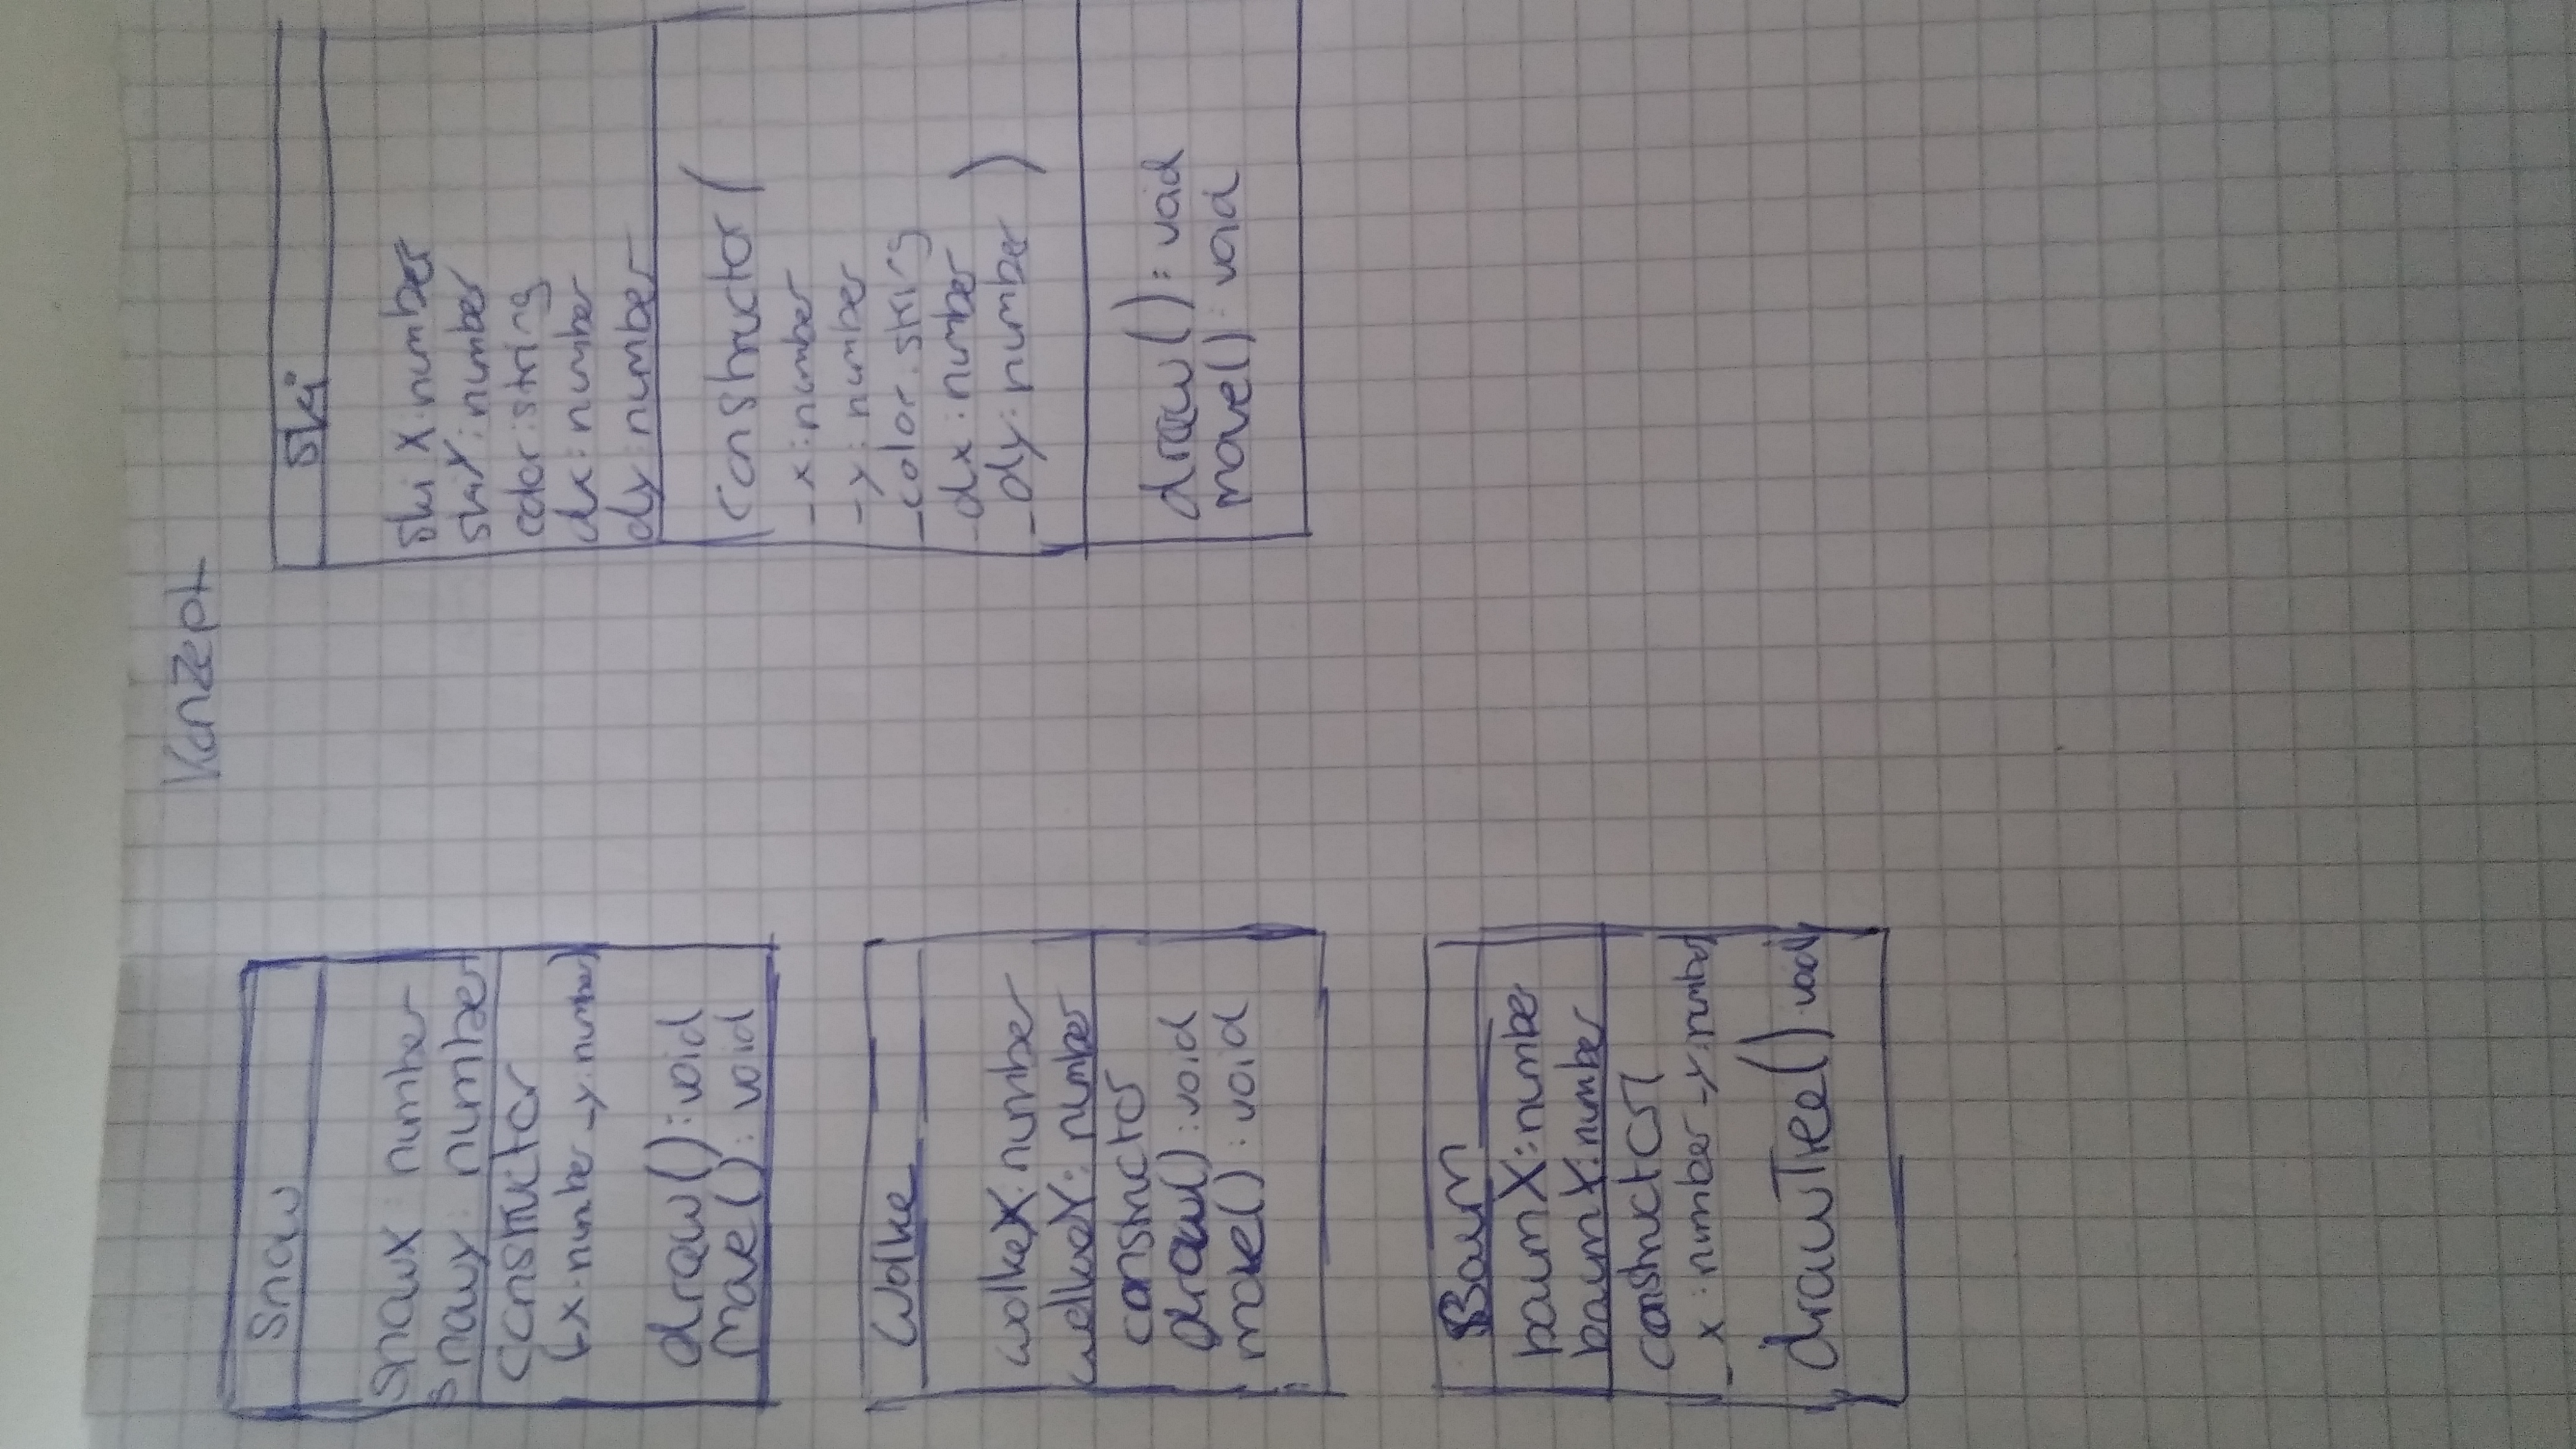 Konzept
Snow
snowX number
snowy: number
constructor
(_x:number _y:number)
draw():void
move(): void
Wolke
wolkeX:number
wolkeY: number
constructor
draw():void
move():void
Baum
baumX:number
baumY:number
constructor
_x:number _y:number)
drawTree() void
Ski
Ski X:number
skiY:number
color:string
dx:number
dy number
constructor(
_x:number
_y:number
_color:string
_dx:number
_dy:number )
draw(): void
move(): void